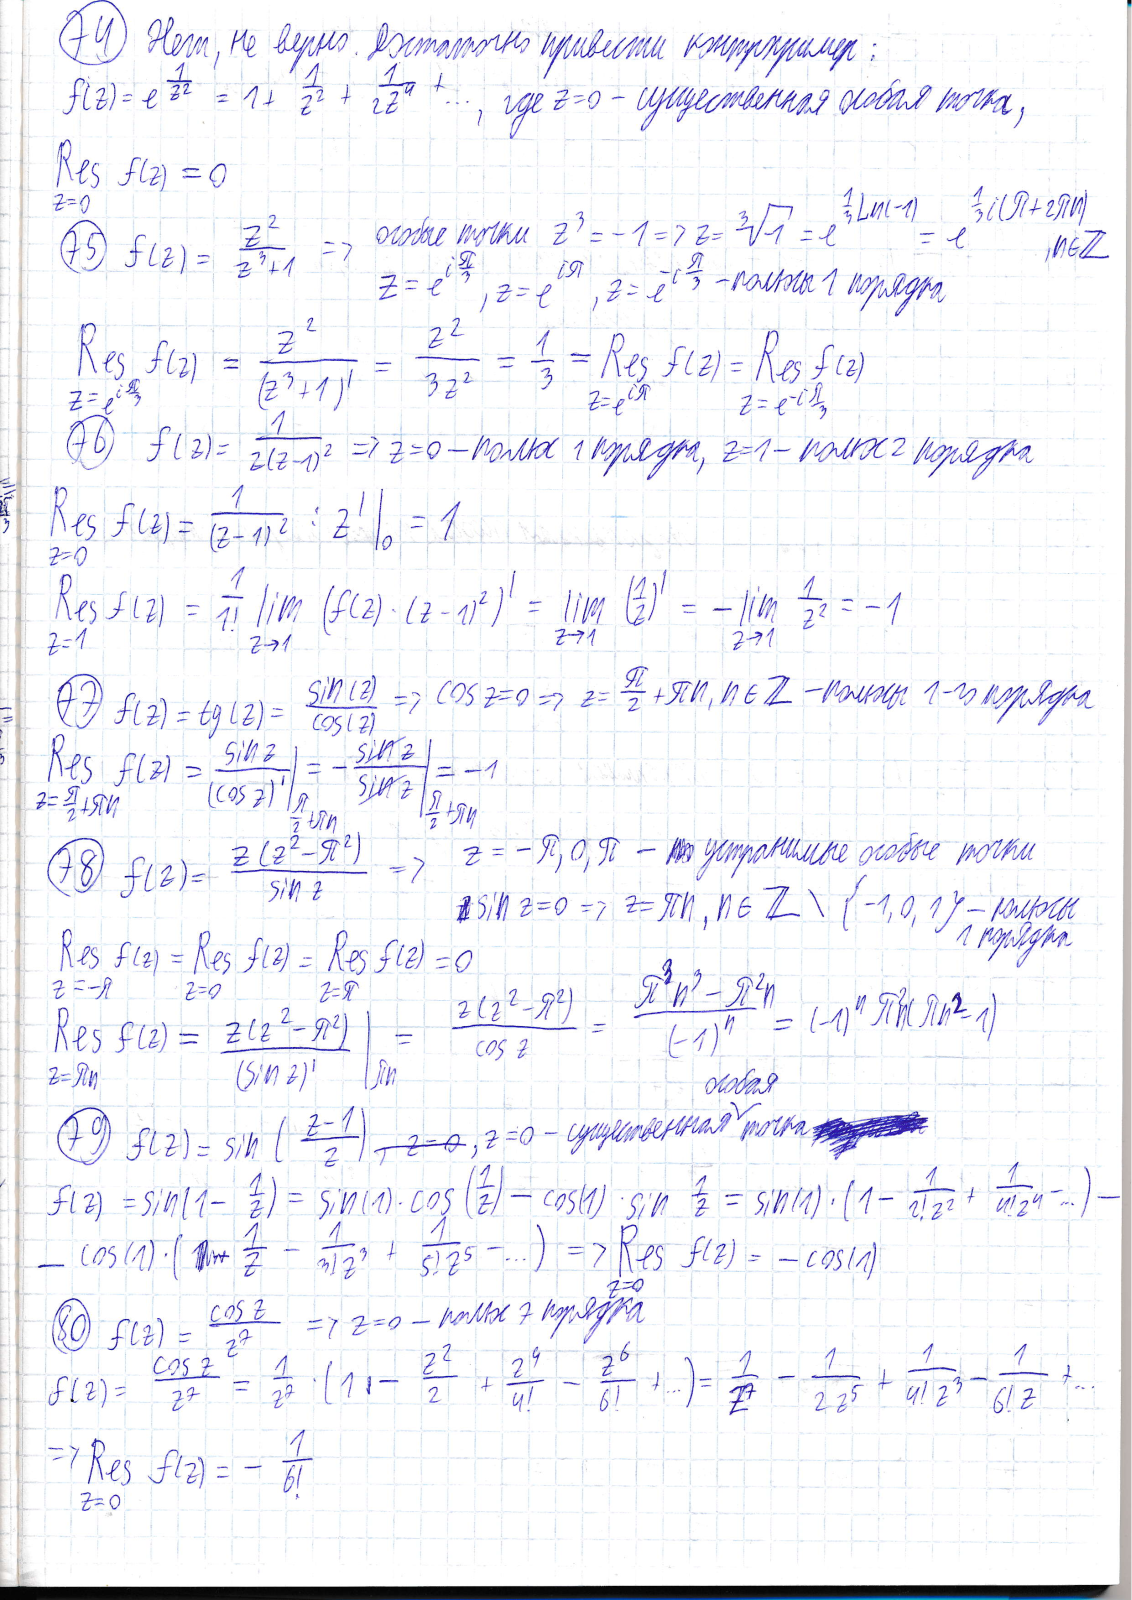 74 Нет, не верно. Достаточно привести контрпример:
f(z) = e^{1/z^2} = 1 + 1/z^2 + 1/2z^4 + ..., где z=0 – существенная особая точка,
Res_{z=0} f(z) = 0
75 f(z) = z^2/(z^3+1) => особые точки z^3 = -1 => z = ∛-1 = e^{1/3 Ln(-1)} = e^{1/3 i(π+2πn)}, n∈ℤ
z = e^{iπ/3}, z = e^{iπ}, z = e^{-iπ/3} – полюсы 1 порядка
Res_{z=e^{iπ/3}} f(z) = z^2/(z^3+1)' = z^2/3z^2 = 1/3 = Res_{z=e^{iπ}} f(z) = Res_{z=e^{-iπ/3}} f(z)
76 f(z) = 1/(z(z-1)^2) => z=0 – полюс 1 порядка, z=1 – полюс 2 порядка
Res_{z=0} f(z) = 1/(z-1)^2 : z'|_0 = 1
Res_{z=1} f(z) = 1/1! lim_{z→1} (f(z)·(z-1)^2)' = lim_{z→1} (1/z)' = -lim_{z→1} 1/z^2 = -1
77 f(z) = tg(z) = sin(z)/cos(z) => cos z=0 => z = π/2 + πn, n∈ℤ – полюсы 1-го порядка
Res_{z=π/2+πn} f(z) = sin z/(cos z)'|_{π/2+πn} = - sin z/sin z|_{π/2+πn} = -1
78 f(z) = z(z^2-π^2)/sin z => z = -π, 0, π – устранимые особые точки
sin z=0 => z = πn, n∈ℤ \ {-1, 0, 1} – полюсы
1 порядка
Res_{z=-π} f(z) = Res_{z=0} f(z) = Res_{z=π} f(z) = 0
Res_{z=πn} f(z) = z(z^2-π^2)/(sin z)'|_{πn} = z(z^2-π^2)/cos z = (π^3n^3 - π^2n)/(-1)^n = (-1)^n π^2n(πn^2-1)
79 f(z) = sin((z-1)/z), z=0 – существенная особая точка
f(z) = sin(1 - 1/z) = sin(1)·cos(1/z) – cos(1)·sin 1/z = sin(1)·(1 - 1/2!z^2 + 1/4!z^4 - ...) –
– cos(1)·(1/z - 1/3!z^3 + 1/5!z^5 - ...) => Res_{z=0} f(z) = -cos(1)
80 f(z) = cos z/z^7 => z=0 – полюс 7 порядка
f(z) = cos z/z^7 = 1/z^7 · (1 - z^2/2 + z^4/4! - z^6/6! + ...) = 1/z^7 - 1/2z^5 + 1/4!z^3 - 1/6!z + ...
=> Res_{z=0} f(z) = - 1/6!